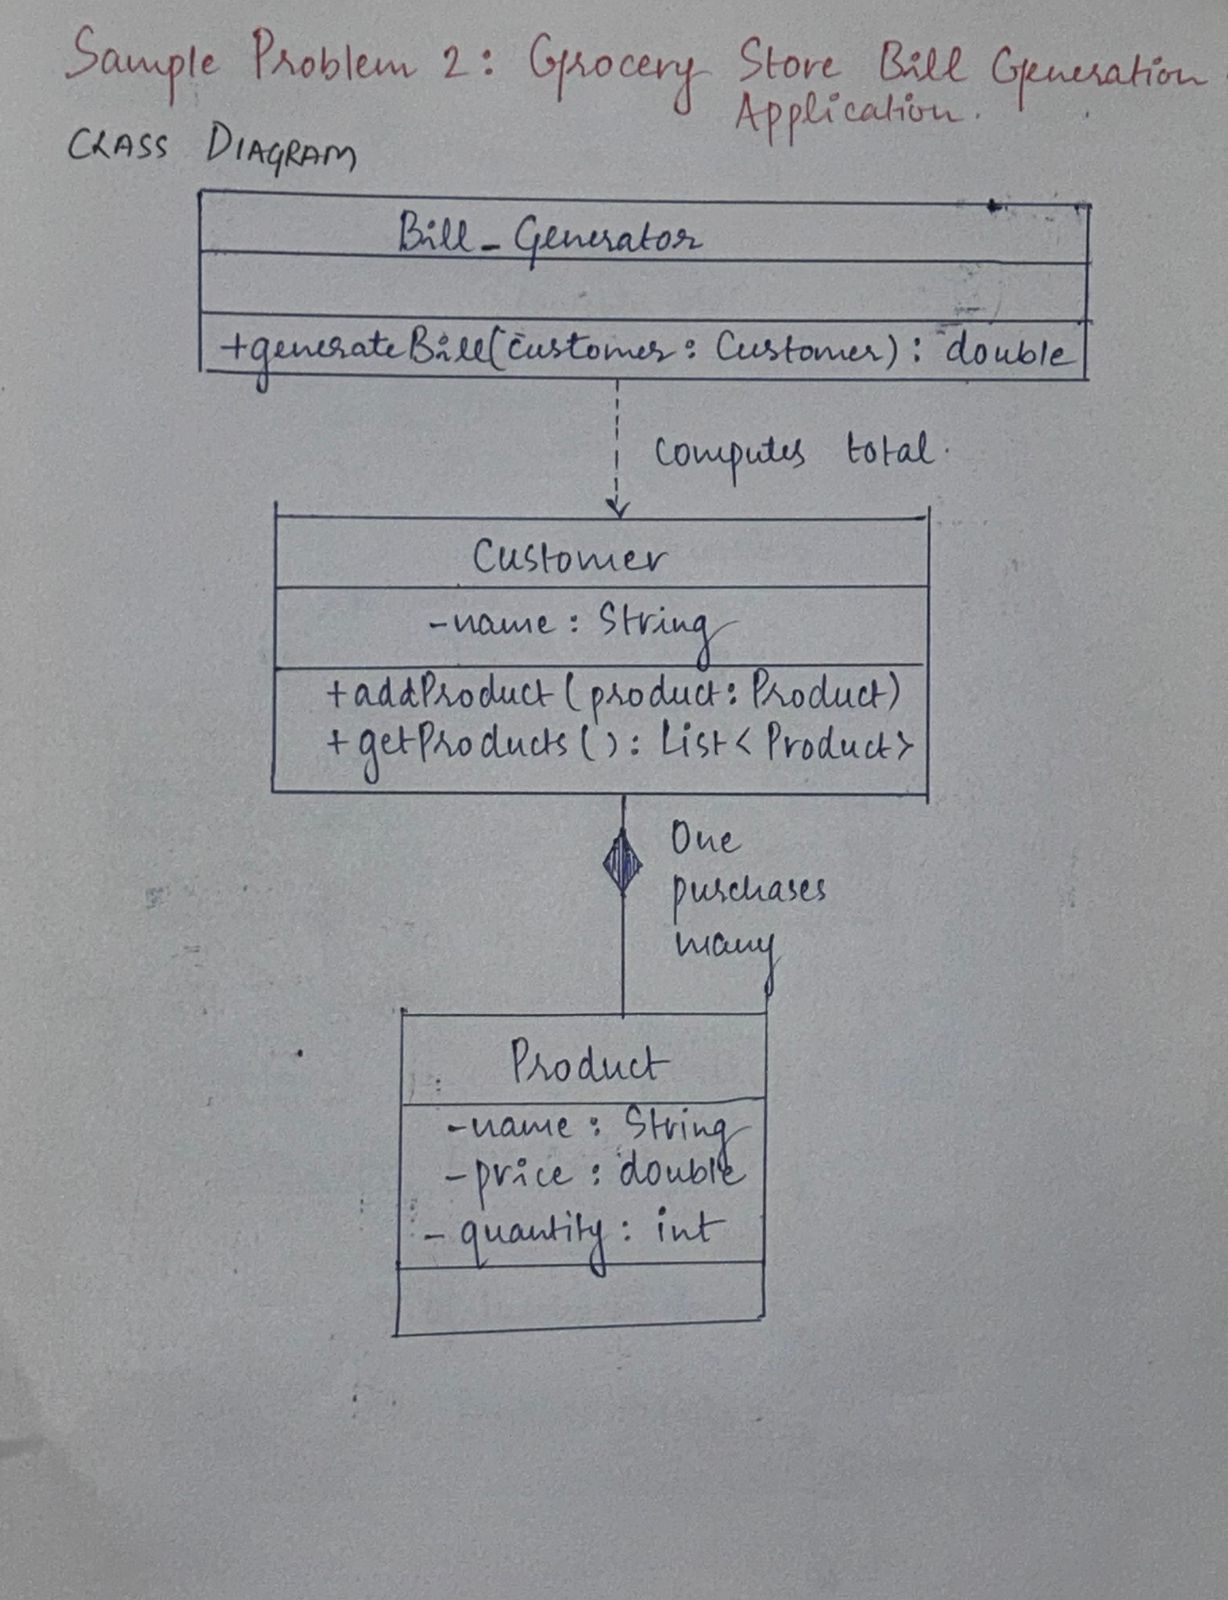 Sample Problem 2: Grocery Store Bill Generation
Application.
CLASS DIAGRAM
Bill_Generator
+generateBill(customer: Customer): double
computes total.
Customer
-name: String
+addProduct(product: Product)
+getProducts(): List<Product>
One
purchases
many
Product
-name: String
-price: double
-quantity: int